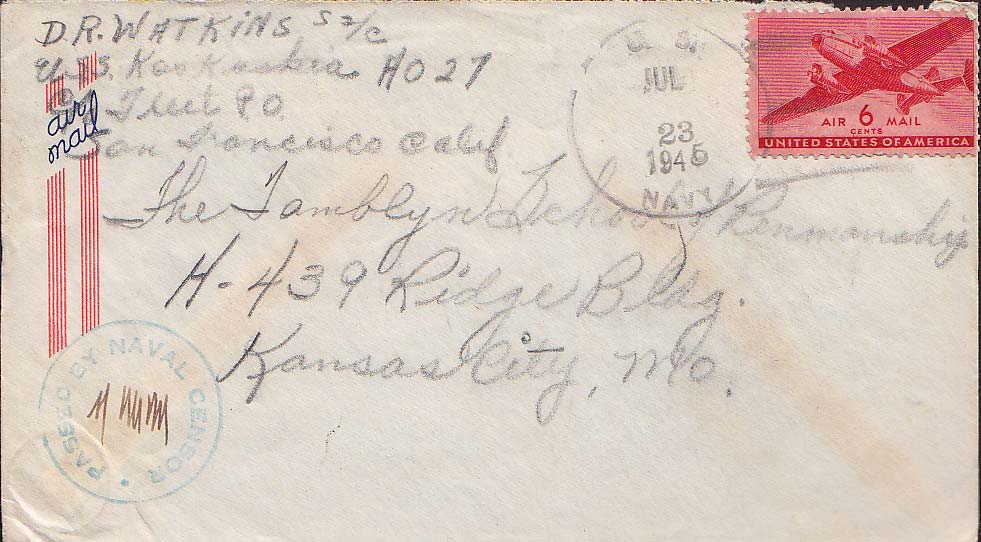 D.R. WATKINS S 2/C
U.S.S. Kaskaskia AO 27
℅ Fleet P.O.
San Francisco Calif
air
mail
U. S.
JUL
23
1945
NAVY
AIR 6 MAIL
CENTS
UNITED STATES OF AMERICA
The Tamblyn School of Penmanship
H-439 Ridge Bldg.
Kansas City, Mo.
PASSED BY NAVAL CENSOR